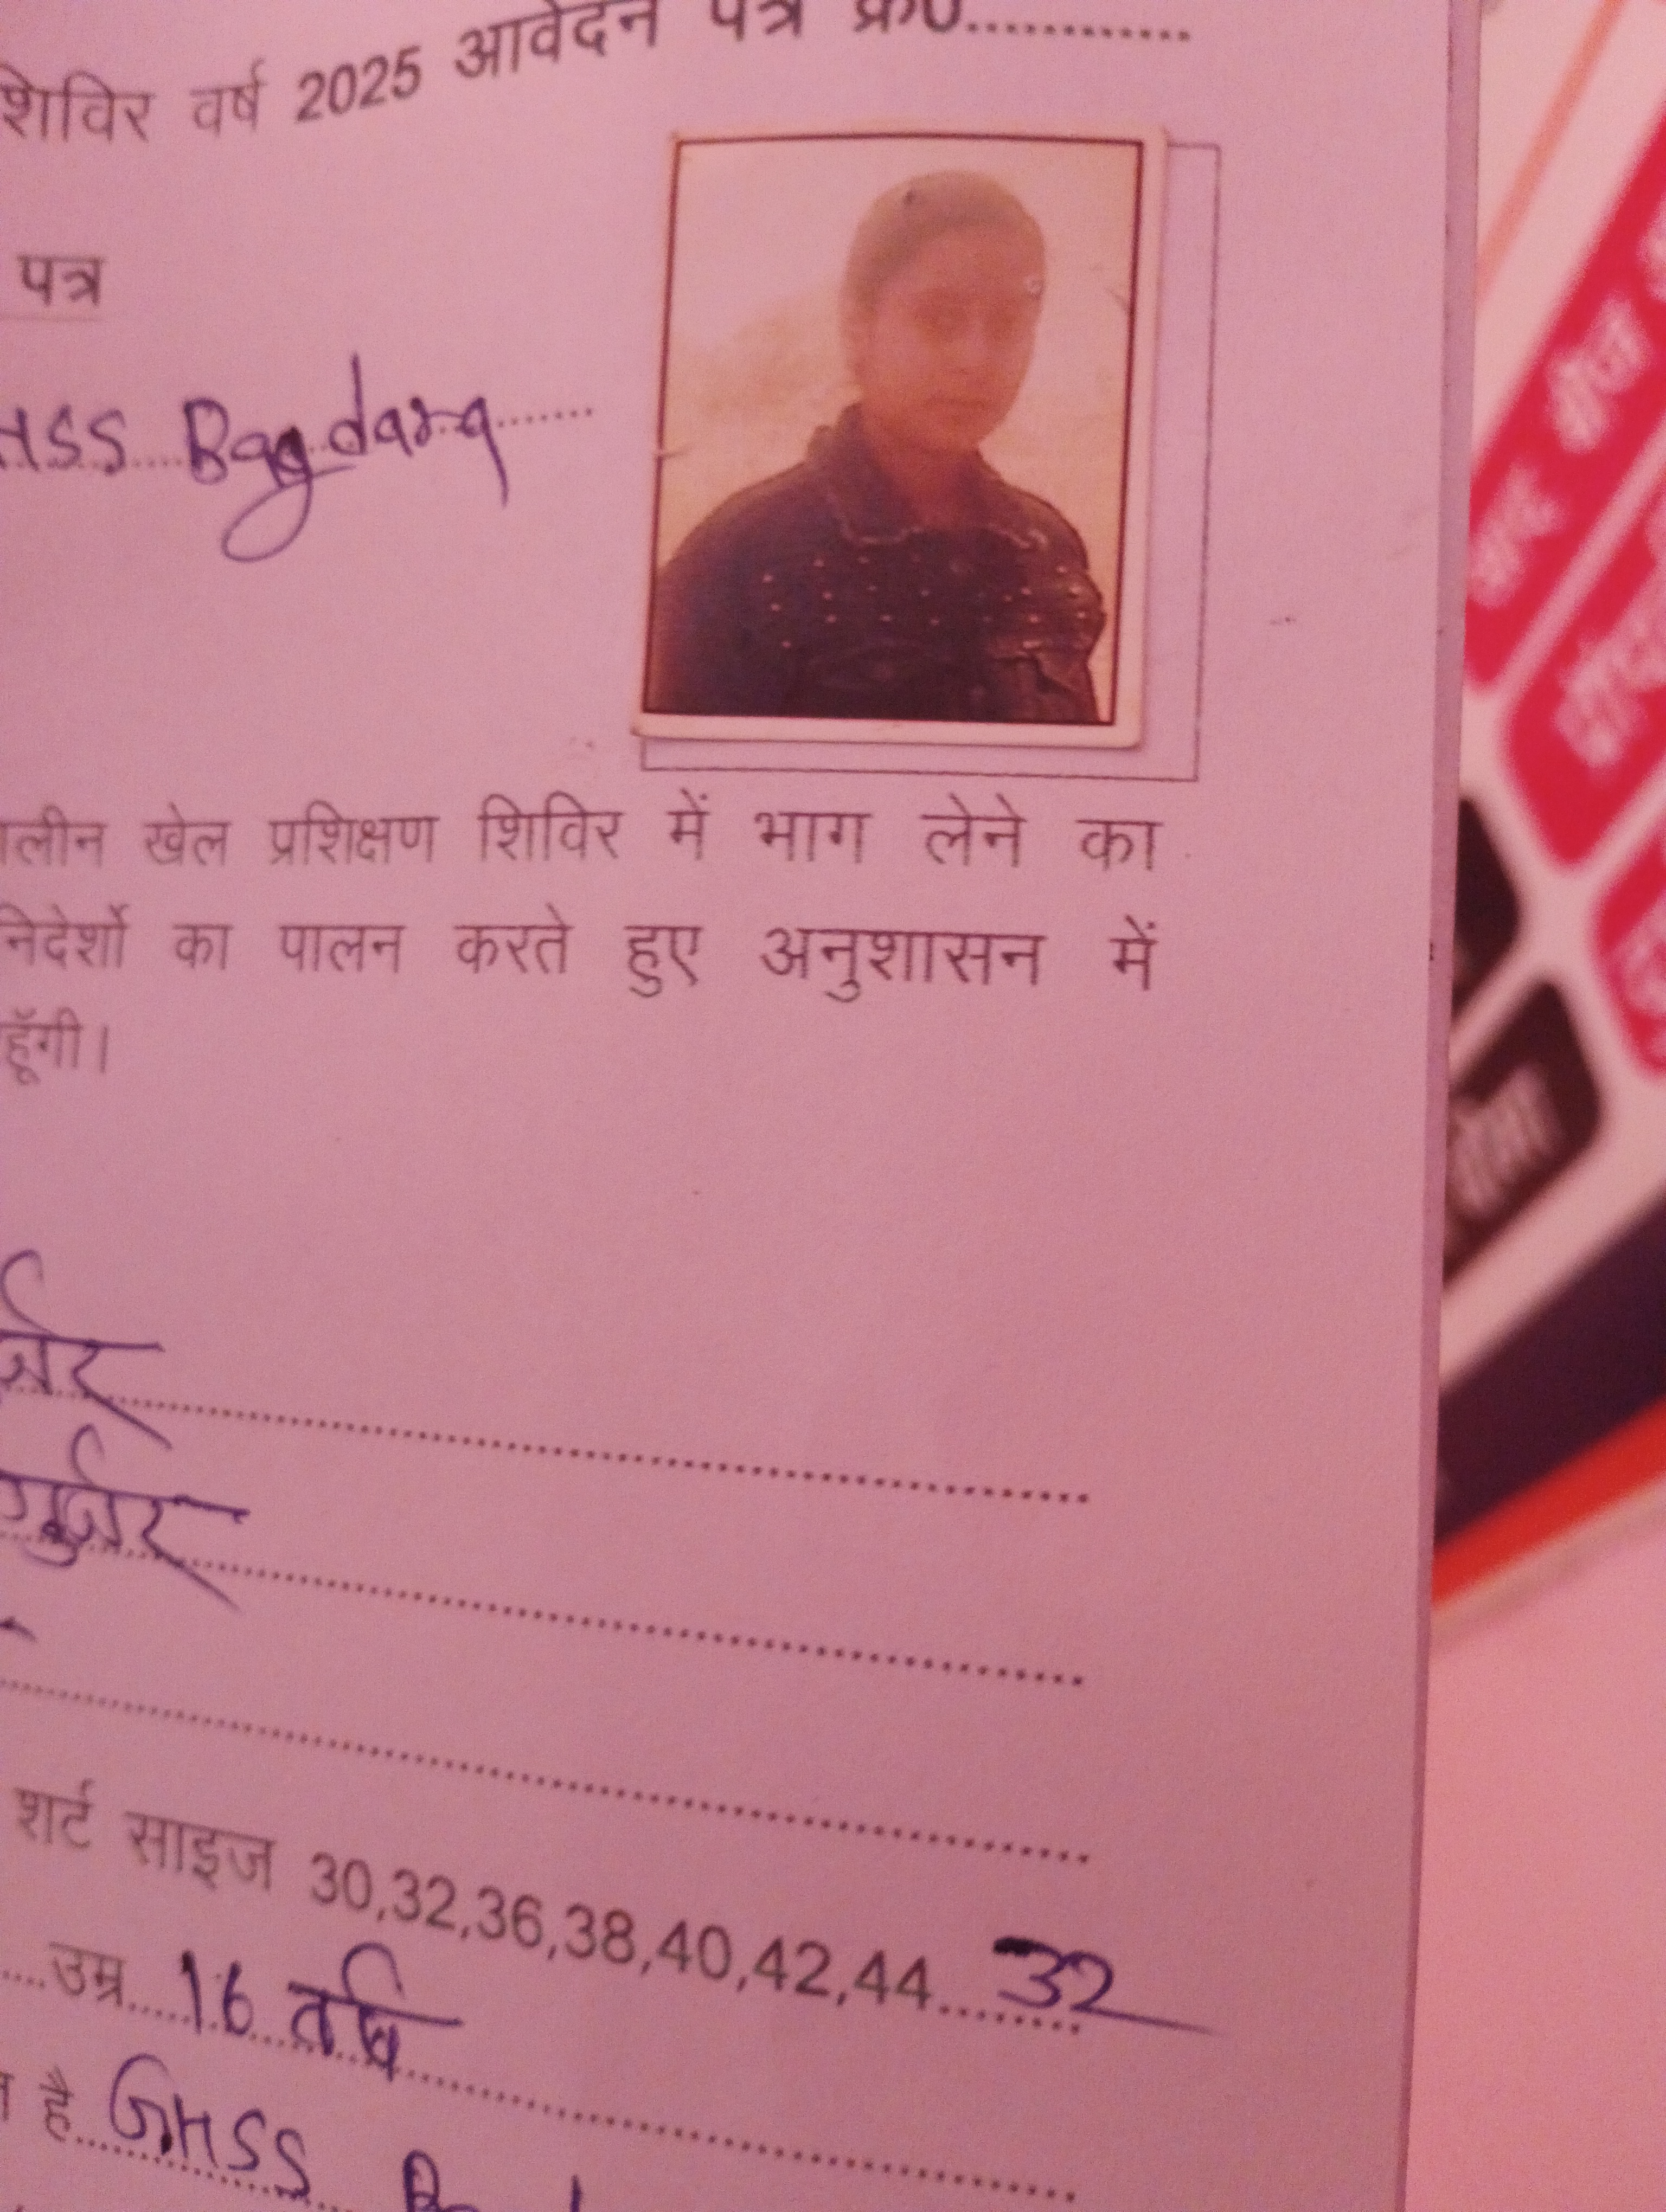 शिविर वर्ष 2025 आवेदन पत्र क्र0............
पत्र
HSS Bagdara
लीन खेल प्रशिक्षण शिविर में भाग लेने का
निदेर्शो का पालन करते हुए अनुशासन में
हूँगी।
र्जर
गुर्जर
शर्ट साइज 30,32,36,38,40,42,44........32
उम्र 16 वर्ष
है GHSS